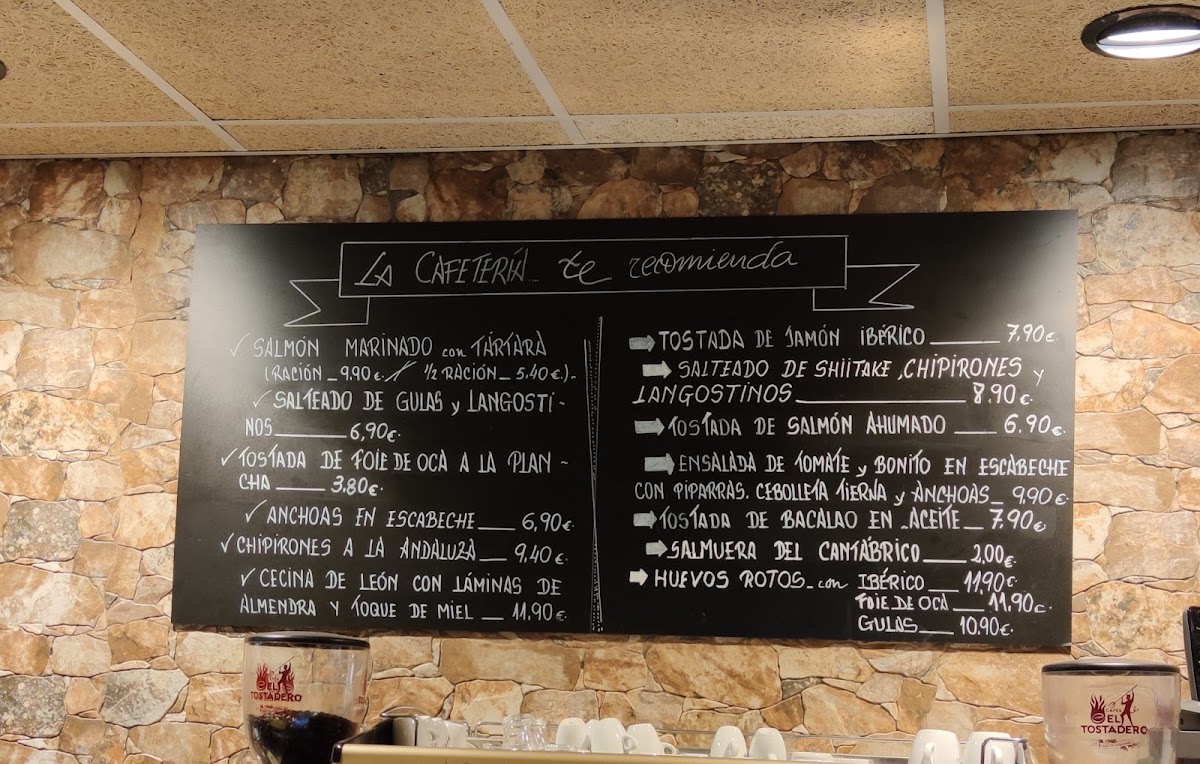 LA CAFETERÍA te recomienda
✓ SALMÓN MARINADO con TÁRTARA
(RACIÓN _ 9,90 €. / ½ RACIÓN _ 5.40 €.)_
✓ SALTEADO DE GULAS y LANGOSTI-
NOS ______ 6,90 €.
✓ TOSTADA DE FOIE DE OCA A LA PLAN-
CHA ____ 3.80 €.
✓ ANCHOAS EN ESCABECHE ___ 6,90 €.
✓ CHIPIRONES A LA ANDALUZA __ 9,40 €.
✓ CECINA DE LEÓN CON LÁMINAS DE
ALMENDRA Y TOQUE DE MIEL __ 11,90 €.
➡ TOSTADA DE JAMÓN IBÉRICO ______ 7,90 €.
➡ SALTEADO DE SHIITAKE, CHIPIRONES y
LANGOSTINOS ____________ 8.90 €.
➡ TOSTADA DE SALMÓN AHUMADO ___ 6.90 €.
➡ ENSALADA DE TOMATE y BONITO EN ESCABECHE
CON PIPARRAS. CEBOLLETA TIERNA y ANCHOAS _ 9,90 €.
➡ TOSTADA DE BACALAO EN ACEITE __ 7.90 €
➡ SALMUERA DEL CANTÁBRICO ____ 2,00 €.
➡ HUEVOS ROTOS _ con IBÉRICO ___ 11,90 €.
FOIE DE OCA ___ 11.90 €.
GULAS ___ 10.90 €.
EL TOSTADERO
CAFÉS
EL
TOSTADERO